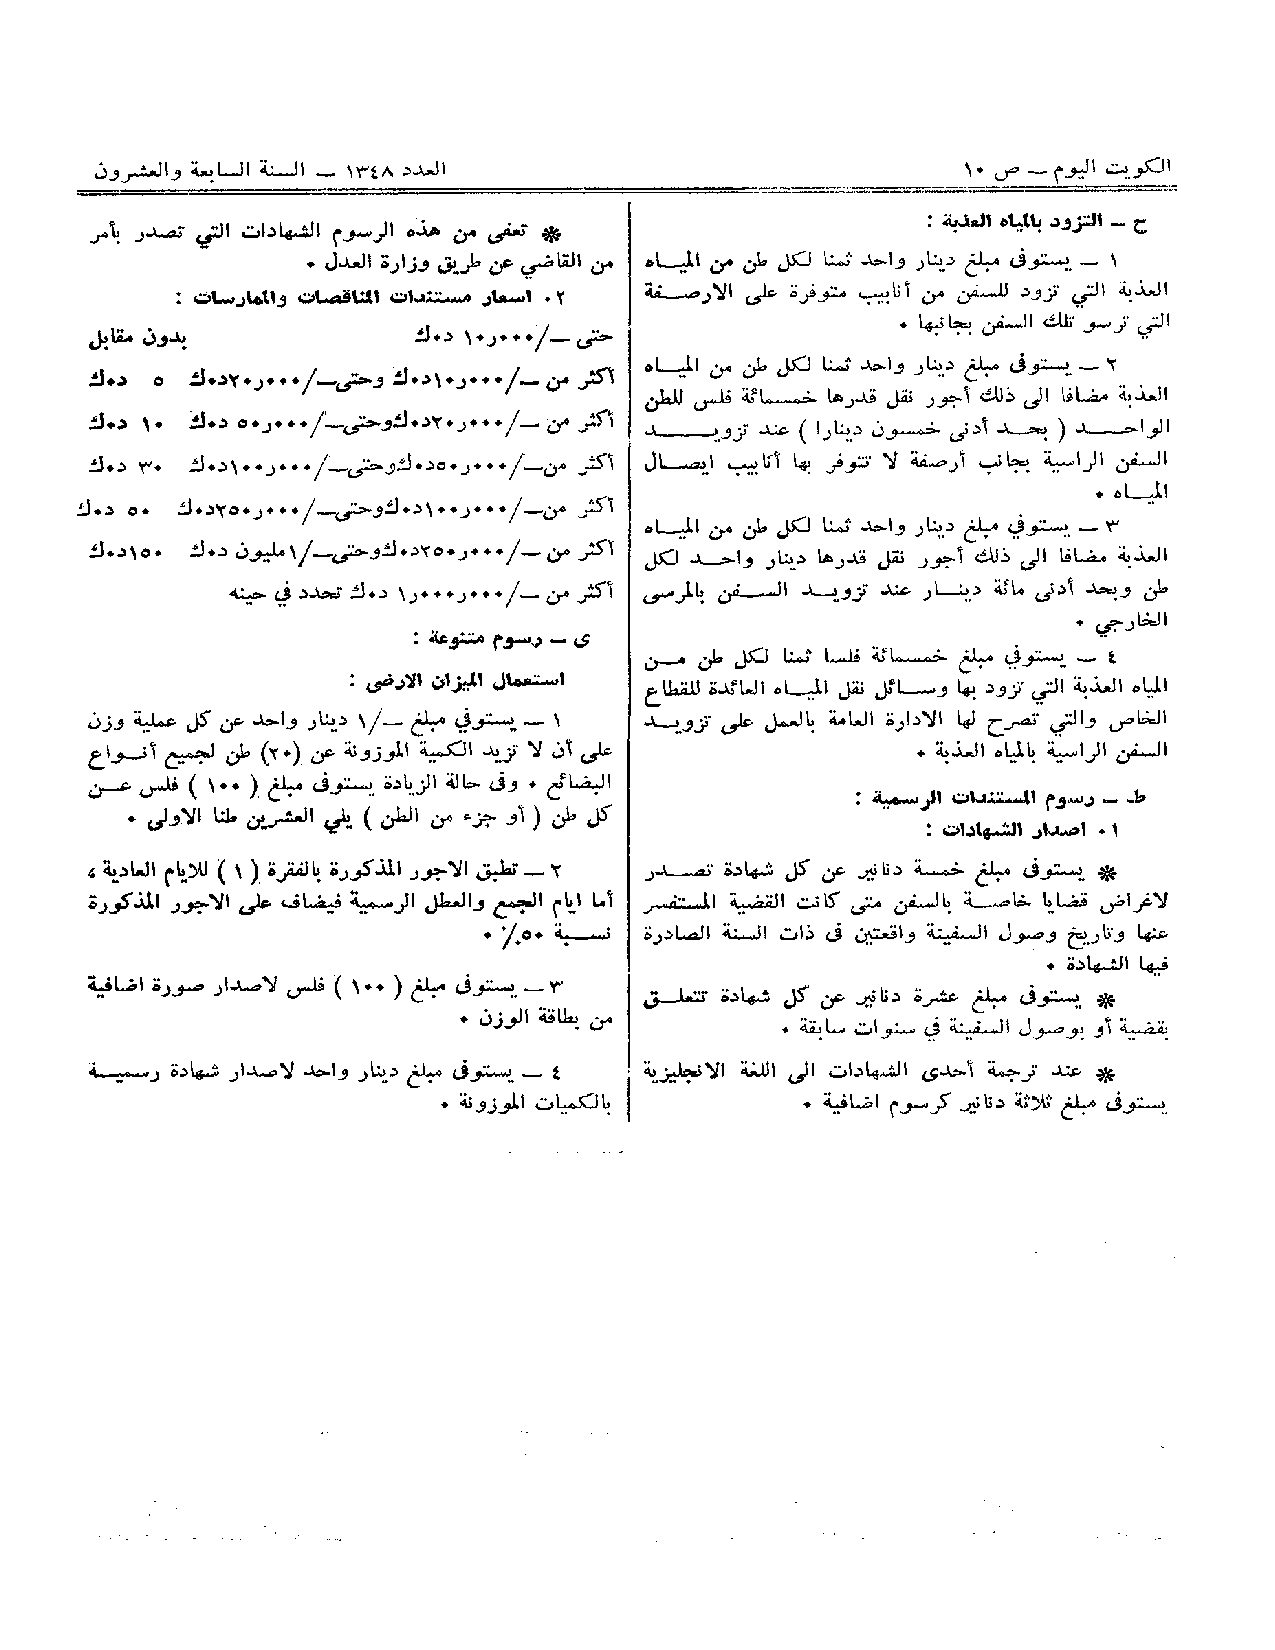 الكويت اليوم — ص ١٠
العدد ١٣٤٨ — السنة السابعة والعشرون
ح — التزود بالمياه العذبة :
١ — يستوفى مبلغ دينار واحد ثمنا لكل طن من المياه
العذبة التي تزود للسفن من أنابيب متوفرة على الارصفة
التي ترسو تلك السفن بجانبها ٠
٢ — يستوفى مبلغ دينار واحد ثمنا لكل طن من المياه
العذبة مضافا الى ذلك أجور نقل قدرها خمسمائة فلس للطن
الواحد ( بحد أدنى خمسون دينارا ) عند تزويد
السفن الراسية بجانب أرصفة لا تتوفر بها أنابيب ايصال
المياه ٠
٣ — يستوفي مبلغ دينار واحد ثمنا لكل طن من المياه
العذبة مضافا الى ذلك أجور نقل قدرها دينار واحد لكل
طن وبحد أدنى مائة دينار عند تزويد السفن بالمرسى
الخارجي ٠
٤ — يستوفي مبلغ خمسمائة فلسا ثمنا لكل طن من
المياه العذبة التي تزود بها وسائل نقل المياه العائدة للقطاع
الخاص والتي تصرح لها الادارة العامة بالعمل على تزويد
السفن الراسية بالمياه العذبة ٠
ط — رسوم المستندات الرسمية :
٠١ اصدار الشهادات :
✽ يستوفى مبلغ خمسة دنانير عن كل شهادة تصدر
لاغراض قضايا خاصة بالسفن متى كانت القضية المستفسر
عنها وتاريخ وصول السفينة واقعتين فى ذات السنة الصادرة
فيها الشهادة ٠
✽ يستوفى مبلغ عشرة دنانير عن كل شهادة تتعلق
بقضية أو بوصول السفينة في سنوات سابقة ٠
✽ عند ترجمة أحدى الشهادات الى اللغة الانجليزية
يستوفى مبلغ ثلاثة دنانير كرسوم اضافية ٠
✽ تعفى من هذه الرسوم الشهادات التي تصدر بأمر
من القاضي عن طريق وزارة العدل ٠
٠٢ اسعار مستندات المناقصات والممارسات :
حتى —/٠٠٠ر١٠ د٠ك بدون مقابل
أكثر من —/٠٠٠ر١٠د٠ك وحتى—/٠٠٠ر٢٠د٠ك ٥ د٠ك
أكثر من —/٠٠٠ر٢٠د٠ك وحتى—/٠٠٠ر٥٠ د٠ك ١٠ د٠ك
أكثر من—/٠٠٠ر٥٠د٠ك وحتى—/٠٠٠ر١٠٠د٠ك ٣٠ د٠ك
أكثر من—/٠٠٠ر١٠٠د٠ك وحتى—/٠٠٠ر٢٥٠د٠ك ٥٠ د٠ك
أكثر من —/٠٠٠ر٢٥٠د٠ك وحتى—/١مليون د٠ك ١٥٠د٠ك
أكثر من —/٠٠٠ر٠٠٠ر١ د٠ك تحدد في حينه
ى — رسوم متنوعة :
استعمال الميزان الارضى :
١ — يستوفي مبلغ —/١ دينار واحد عن كل عملية وزن
على أن لا تزيد الكمية الموزونة عن (٢٠) طن لجميع أنواع
البضائع ٠ وفى حالة الزيادة يستوفى مبلغ ( ١٠٠ ) فلس عن
كل طن ( أو جزء من الطن ) يلي العشرين طنا الاولى ٠
٢ — تطبق الاجور المذكورة بالفقرة ( ١ ) للايام العادية ،
أما ايام الجمع والعطل الرسمية فيضاف على الاجور المذكورة
نسبة ٥٠٪ ٠
٣ — يستوفى مبلغ ( ١٠٠ ) فلس لاصدار صورة اضافية
من بطاقة الوزن ٠
٤ — يستوفى مبلغ دينار واحد لاصدار شهادة رسمية
بالكميات الموزونة ٠